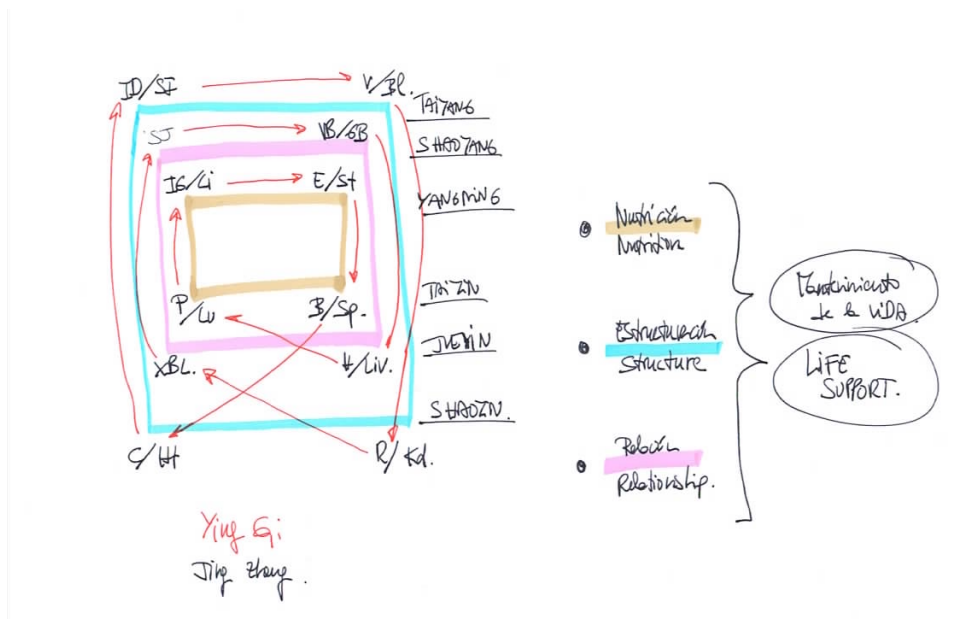 ID/SI
V/Bl.
TAIYANG
SJ
VB/GB
SHAOYANG
IG/Li
E/St
YANGMING
P/Lu
B/Sp.
TAIYIN
XBL.
H/Liv.
JUEYIN
SHAOYIN.
C/Ht
R/Kd.
Ying Qi
Jing Zheng.
Nutrición
Nutrition
Estructuración
Structure
Relación
Relationship.
Mantenimiento
de la VIDA
LiFE
SUPPORT.